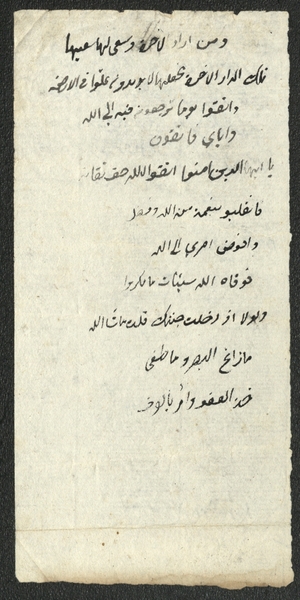 ومن اراد الاخرة وسعى لها سعيها
تلك الدار الاخرة نجعلها للا يريدون علوا في الارض
واتقوا يوما ترجعون فيه الى الله
واياي فاتقون
يا ايها الذين امنوا اتقوا الله حق تقاته
فانقلبو بنعمة من الله وفضل
وافوض امري الى الله
فوقاه الله سيئات ما مكروا
ولولا اذ دخلت جنتك قلت ما شاء الله
ما زاغ البصر وما طغى
خذ العفو وامر بالعرف